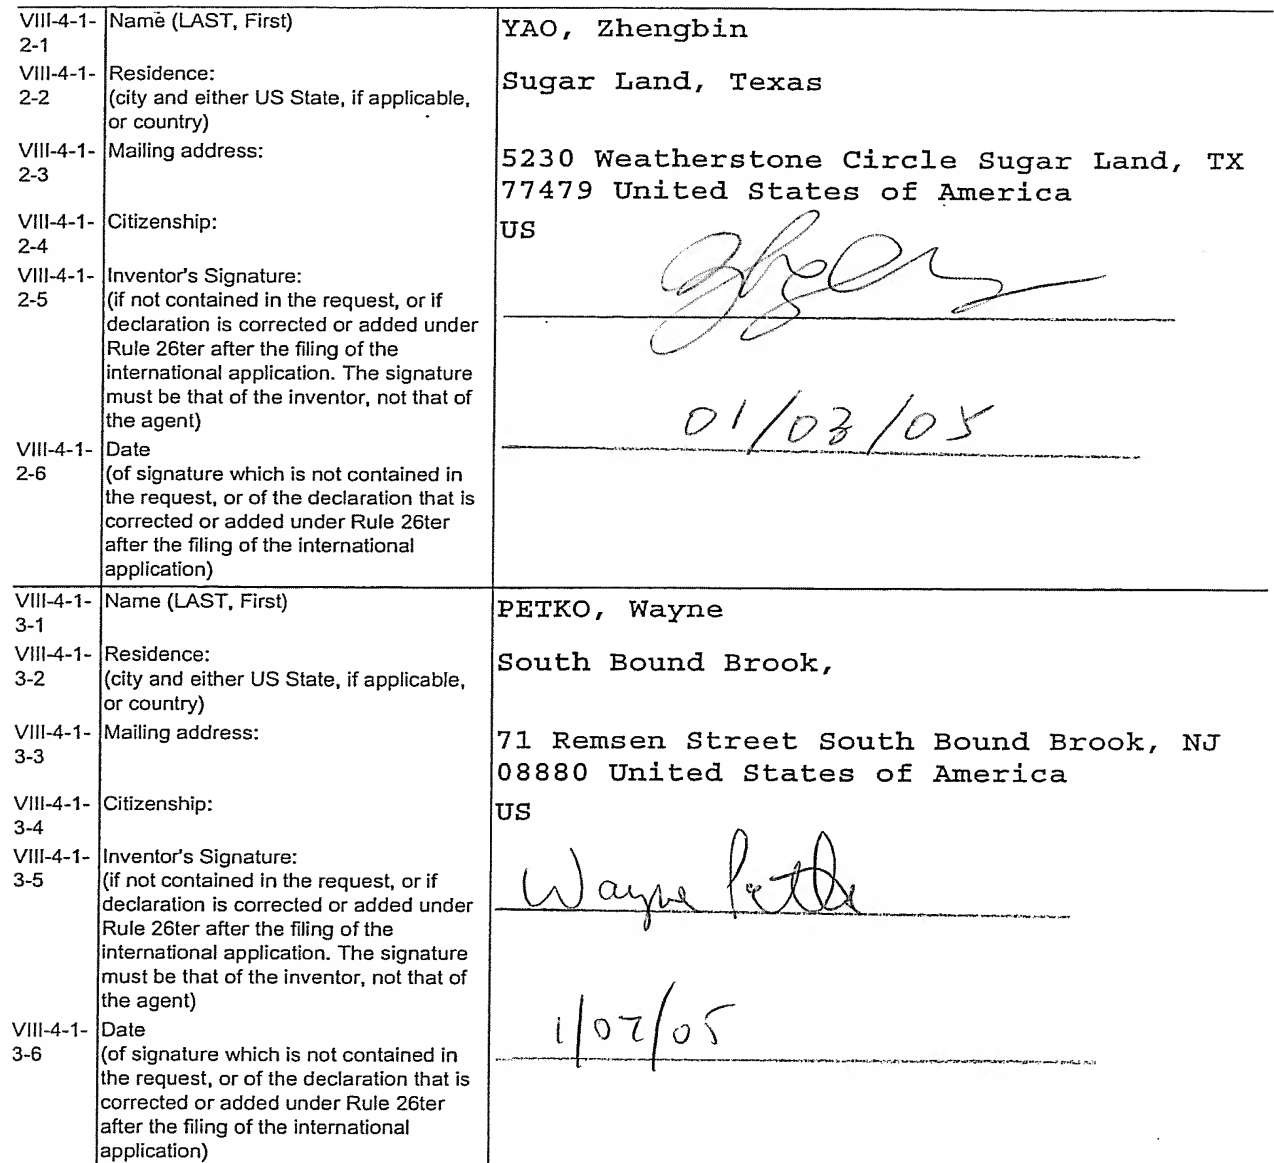 VIII-4-1- Name (LAST, First) YAO, Zhengbin
2-1
VIII-4-1- Residence: Sugar Land, Texas
2-2 (city and either US State, if applicable,
or country)
VIII-4-1- Mailing address: 5230 Weatherstone Circle Sugar Land, TX
2-3 77479 United States of America
VIII-4-1- Citizenship: US
2-4
VIII-4-1- Inventor's Signature:
2-5 (if not contained in the request, or if
declaration is corrected or added under
Rule 26ter after the filing of the
international application. The signature
must be that of the inventor, not that of
the agent)
01/03/05
VIII-4-1- Date
2-6 (of signature which is not contained in
the request, or of the declaration that is
corrected or added under Rule 26ter
after the filing of the international
application)
VIII-4-1- Name (LAST, First) PETKO, Wayne
3-1
VIII-4-1- Residence: South Bound Brook,
3-2 (city and either US State, if applicable,
or country)
VIII-4-1- Mailing address: 71 Remsen Street South Bound Brook, NJ
3-3 08880 United States of America
VIII-4-1- Citizenship: US
3-4
VIII-4-1- Inventor's Signature:
3-5 (if not contained in the request, or if
declaration is corrected or added under Wayne Petko
Rule 26ter after the filing of the
international application. The signature
must be that of the inventor, not that of
the agent)
VIII-4-1- Date 1/07/05
3-6 (of signature which is not contained in
the request, or of the declaration that is
corrected or added under Rule 26ter
after the filing of the international
application)